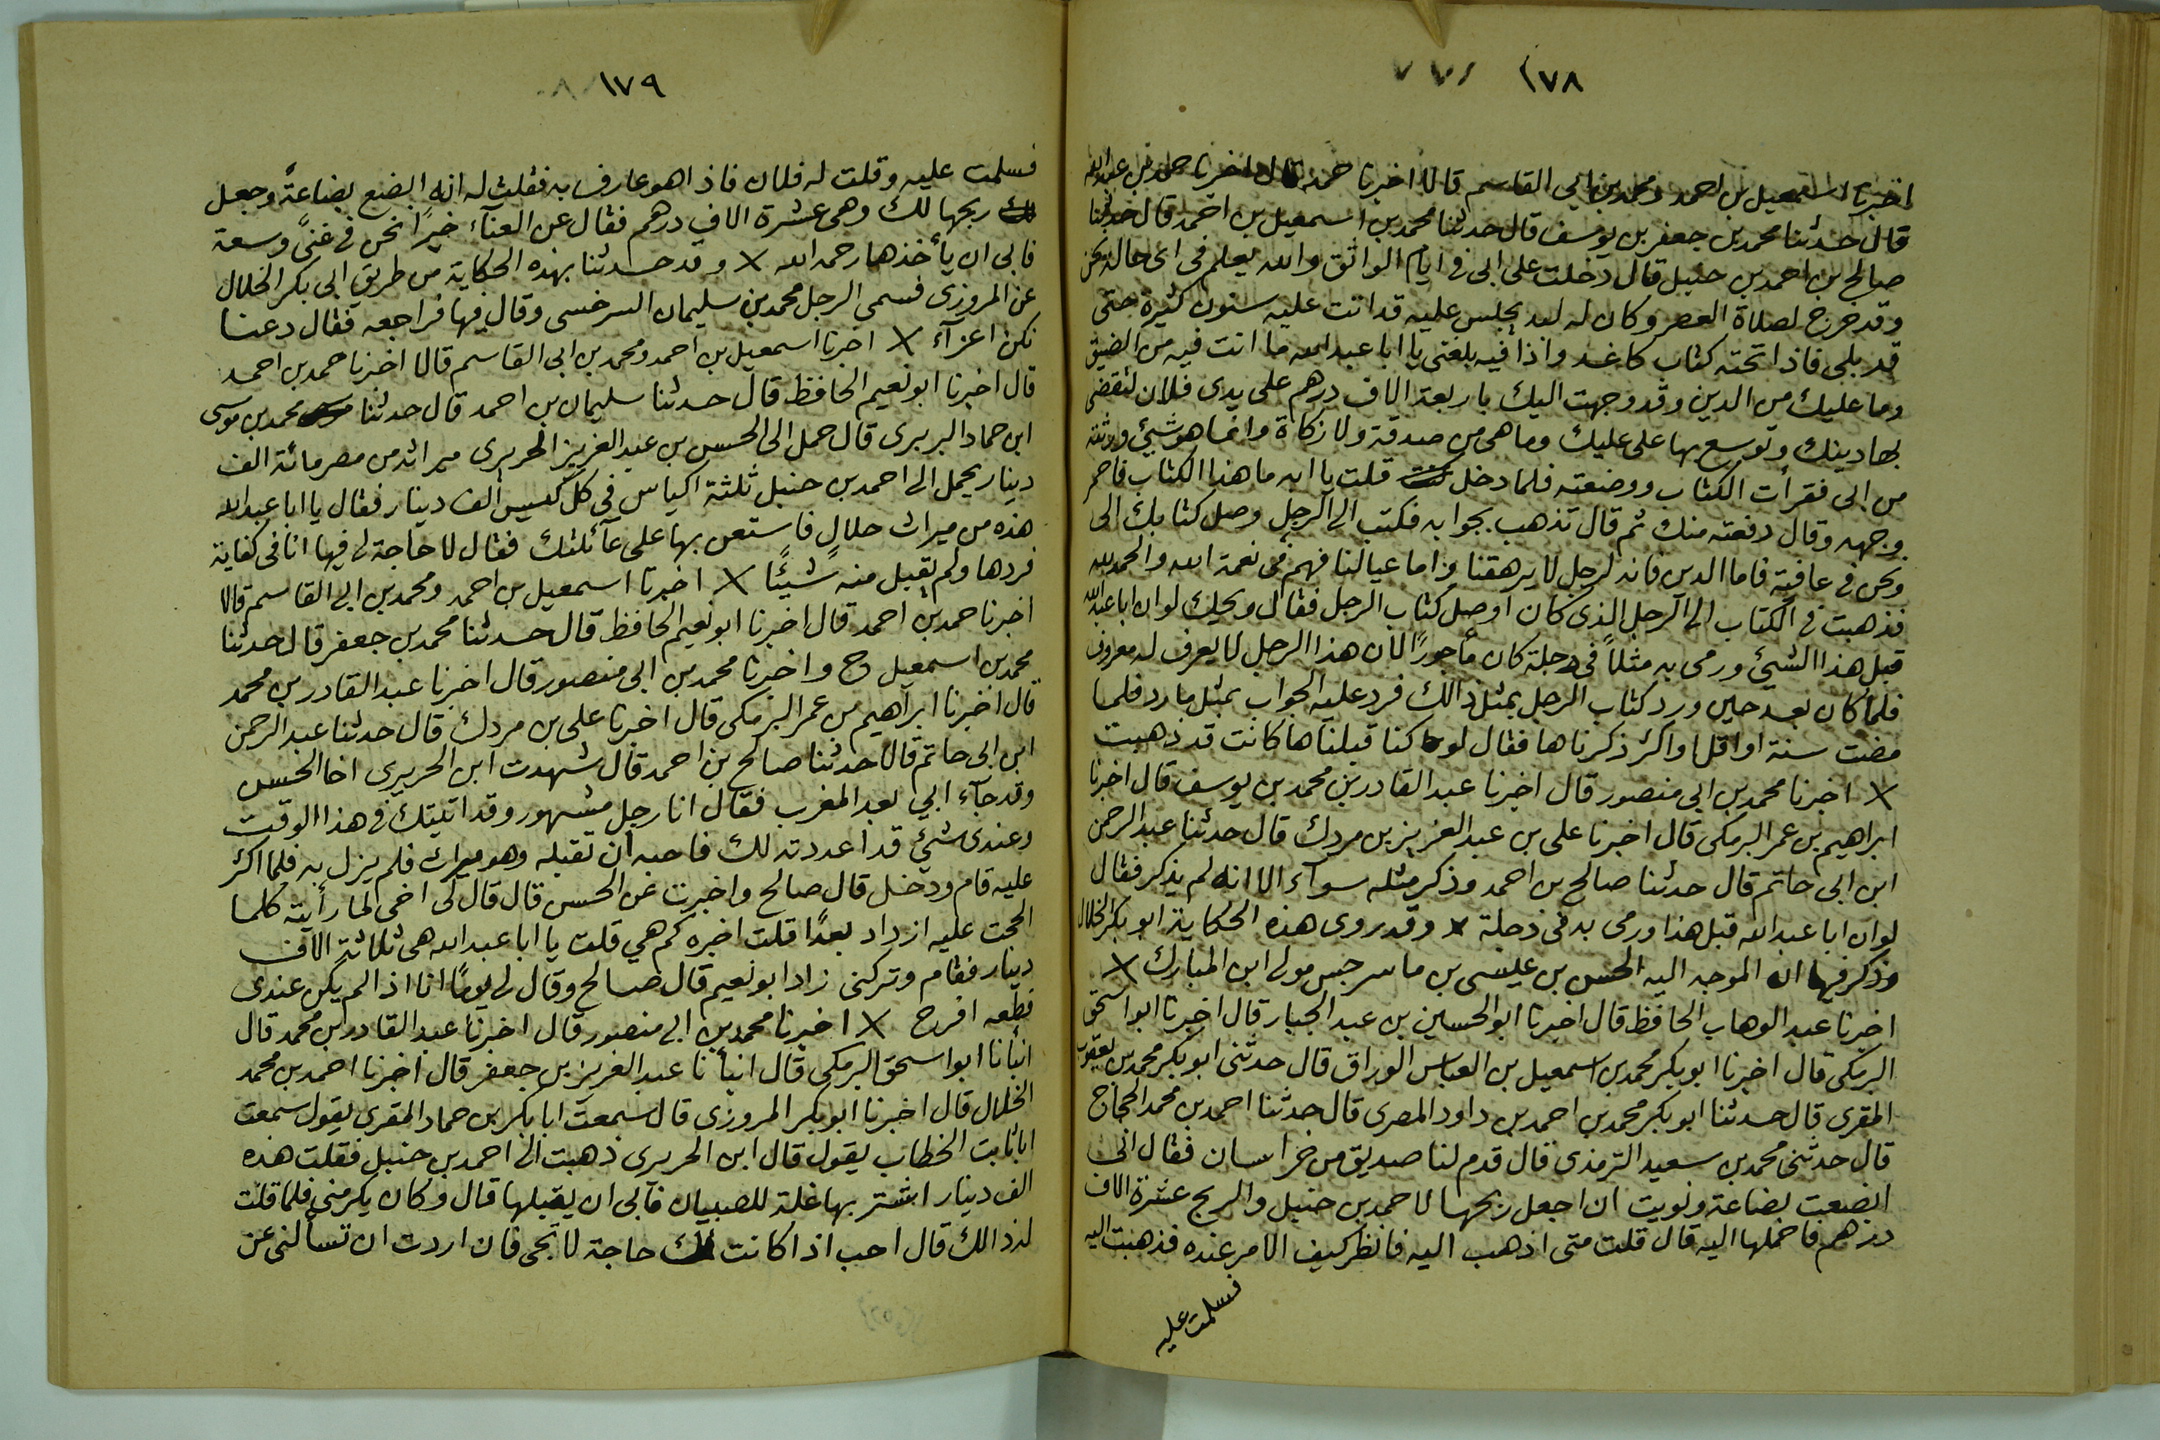 ١٧٨
اخبرنا اسمعيل بن احمد ومحمد بن ابى القاسم قالا اخبرنا حمد قال اخبرنا حمد بن عبدالله
قال حدثنا محمد بن جعفر بن يوسف قال حدثنا محمد بن اسمعيل بن احمد قال حدثنا
صالح بن احمد بن حنبل قال دخلت على ابى فى ايام الواثق والله يعلم فى اى حالة نحن
وقد خرج لصلاة العصر وكان له لبد يجلس عليه قد اتت عليه سنون كثيرة حتى
قد بلى فاذا تحته كتاب كاغد واذا فيه بلغنى يا ابا عبدالله ما انت فيه من الضيق
وما عليك من الدين وقد وجهت اليك باربعة الاف درهم على يدى فلان لتقضى
بها دينك وتوسع بها على عليك وما هى من صدقة ولا زكاة وانما هو شيئ ورثته
من ابى فقرأت الكتاب ووضعته فلما دخل قلت يا ابه ما هذا الكتاب فاحمر
وجهه وقال دفعته منك ثم قال تذهب بجوابه فكتب الى الرجل وصل كتابك الى
ونحن فى عافية فاما الدين فانه لرجل لا يرهقنا واما عيالنا فهم فى نعمة الله والحمد لله
فذهبت فى الكتاب الى الرجل الذى كان اوصل كتاب الرجل فقال ويحك لو ان ابا عبدالله
قبل هذا الشيئ ورمى به مثلاً فى دجلة كان مأجورًا لان هذا الرجل لا يعرف له معروف
فلما كان بعد حين ورد كتاب الرجل بمثل ذالك فرد عليه الجواب بمثل ما رد فلما
مضت سنة او اقل او اكثر ذكرناها فقال لو كنا قبلناها كانت قد ذهبت
× اخبرنا محمد بن ابى منصور قال اخبرنا عبد القادر بن محمد بن يوسف قال اخبرنا
ابراهيم بن عمر البرمكى قال اخبرنا على بن عبد العزيز بن مردك قال حدثنا عبد الرحمن
ابن ابى حاتم قال حدثنا صالح بن احمد وذكر مثله سوآء الا انه لم يذكر فقال
لو ان ابا عبدالله قبل هذا ورمى به فى دجلة × وقد روى هذه الحكاية ابو بكر الخلال
وذكر فيها ان الموجه اليه الحسن بن عيسى بن ماسرجس مولى ابن المبارك ×
اخبرنا عبد الوهاب الحافظ قال اخبرنا ابو الحسين بن عبد الجبار قال اخبرنا ابو اسحق
البرمكى قال اخبرنا ابو بكر محمد بن اسمعيل بن العباس الوراق قال حدثنى ابو بكر محمد بن يعقوب
المقرى قال حدثنا ابو بكر محمد بن احمد بن داود المصرى قال حدثنا احمد بن محمد الحجاج
قال حدثنى محمد بن سعيد الترمذى قال قدم لنا صديق من خراسان فقال انى
ابضعت بضاعة ونويت ان اجعل ربحها لاحمد بن حنبل والربح عشرة الاف
درهم فاحملها اليه قال قلت متى اذهب اليه فانظر كيف الامر عنده فذهبت اليه
فسلمت عليه
١٧٩
فسلمت عليه وقلت له فلان فاذا هو عارف به فقلت له انه ابضع بضاعةً وجعل
ربحها لك وهى عشرة الاف درهم فقال عن العنآء خيرًا نحن فى غنىً وسعة
فابى ان يأخذها رحمه الله × وقد حدثنا بهذه الحكاية من طريق ابى بكر الخلال
عن المروزى فسمى الرجل محمد بن سليمان السرخسى وقال فيها فراجعه فقال دعنا
نكن اعزآء × اخبرنا اسمعيل بن احمد ومحمد بن ابى القاسم قالا اخبرنا حمد بن احمد
قال اخبرنا ابو نعيم الحافظ قال حدثنا سليمان بن احمد قال حدثنا محمد بن موسى
ابن حماد البربرى قال حمل الى الحسن بن عبد العزيز الحريرى ميراثه من مصر مائة الف
دينار يحمل الى احمد بن حنبل ثلثة اكياس فى كل كيس الف دينار فقال يا ابا عبدالله
هذه من ميراث حلالٍ فاستعن بها على عآئلتك فقال لا حاجة لى فيها انا فى كفاية
فردها ولم يقبل منه شيئًا × اخبرنا اسمعيل بن احمد ومحمد بن ابى القاسم قالا
اخبرنا حمد بن احمد قال اخبرنا ابو نعيم الحافظ قال حدثنا محمد بن جعفر قال حدثنا
محمد بن اسمعيل ح واخبرنا محمد بن ابى منصور قال اخبرنا عبد القادر بن محمد
قال اخبرنا ابراهيم بن عمر البرمكى قال اخبرنا على بن مردك قال حدثنا عبد الرحمن
ابن ابى حاتم قالا حدثنا صالح بن احمد قال شهدت ابن الحريرى اخا الحسن
وقد جآء ابي بعد المغرب فقال انا رجل مشهور وقد اتيتك فى هذا الوقت
وعندى شيئ قد اعددته لك فاحب ان تقبله وهو ميراث فلم يزل به فلما اكثر
عليه قام ودخل قال صالح واخبرت عن الحسن قال قال لى اخى لما رأيته كلما
الححت عليه ازداد بعدًا قلت اخبره كم هي قلت يا ابا عبدالله هى ثلاثة الاف
دينار فقام وتركنى زاد ابو نعيم قال صالح وقال لى يومًا انا اذا لم يكن عندى
قطعه افرح × اخبرنا محمد بن ابى منصور قال اخبرنا عبد القادر بن محمد قال
انبأنا ابو اسحق البرمكى قال انبأنا عبد العزيز بن جعفر قال اخبرنا احمد بن محمد
الخلال قال اخبرنا ابو بكر المروزى قال سمعت ابا بكر بن حماد المقرى يقول سمعت
ابا ثابت الخطاب يقول قال ابن الحريرى ذهبت الى احمد بن حنبل فقلت هذه
الف دينار اشتر بها غلة للصبيان فابى ان يقبلها قال وكان يكرمنى فلما قلت
له ذالك قال احب اذا كانت لك حاجة لا تجى فان اردت ان تسألنى عن